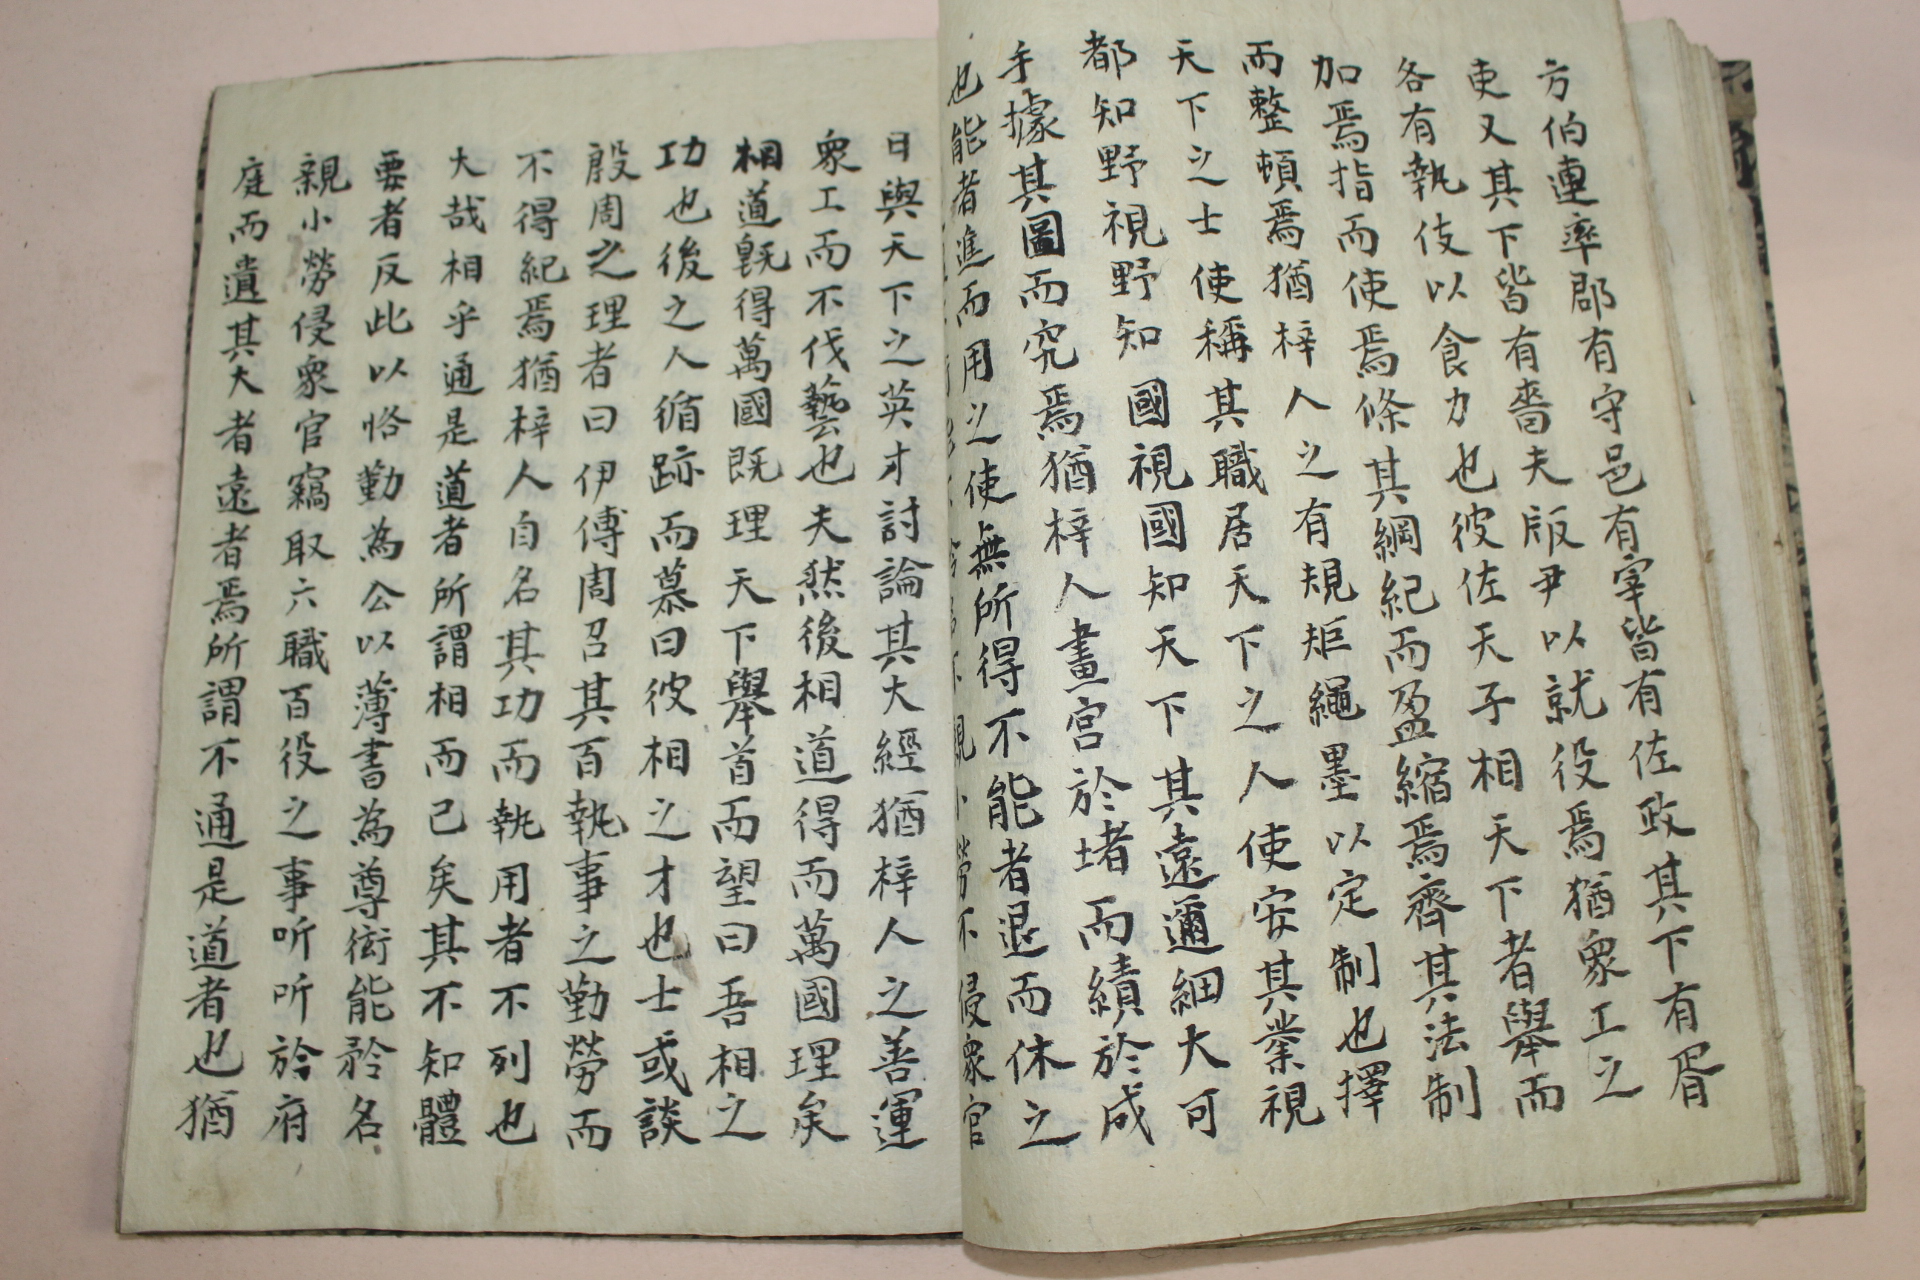 方伯連率郡有守邑有宰皆有佐政其下有胥
吏又其下皆有嗇夫版尹以就役焉猶衆工之
各有執伎以食力也彼佐天子相天下者舉而
加焉指而使焉條其綱紀而盈縮焉齊其法制
而整頓焉猶梓人之有規矩繩墨以定制也擇
天下之士使稱其職居天下之人使安其業視
都知野視野知國視國知天下其遠邇細大可
手據其圖而究焉猶梓人畫宮於堵而績於成
也能者進而用之使無所得不能者退而休之
親小勞不侵衆官
日與天下之英才討論其大經猶梓人之善運
衆工而不伐藝也夫然後相道得而萬國理矣
相道旣得萬國既理天下舉首而望曰吾相之
功也後之人循跡而慕曰彼相之才也士或談
殷周之理者曰伊傅周召其百執事之勤勞而
不得紀焉猶梓人自名其功而執用者不列也
大哉相乎通是道者所謂相而已矣其不知體
要者反此以恪勤為公以薄書為尊衒能矜名
親小勞侵衆官竊取六職百役之事听听於府
庭而遺其大者遠者焉所謂不通是道者也猶